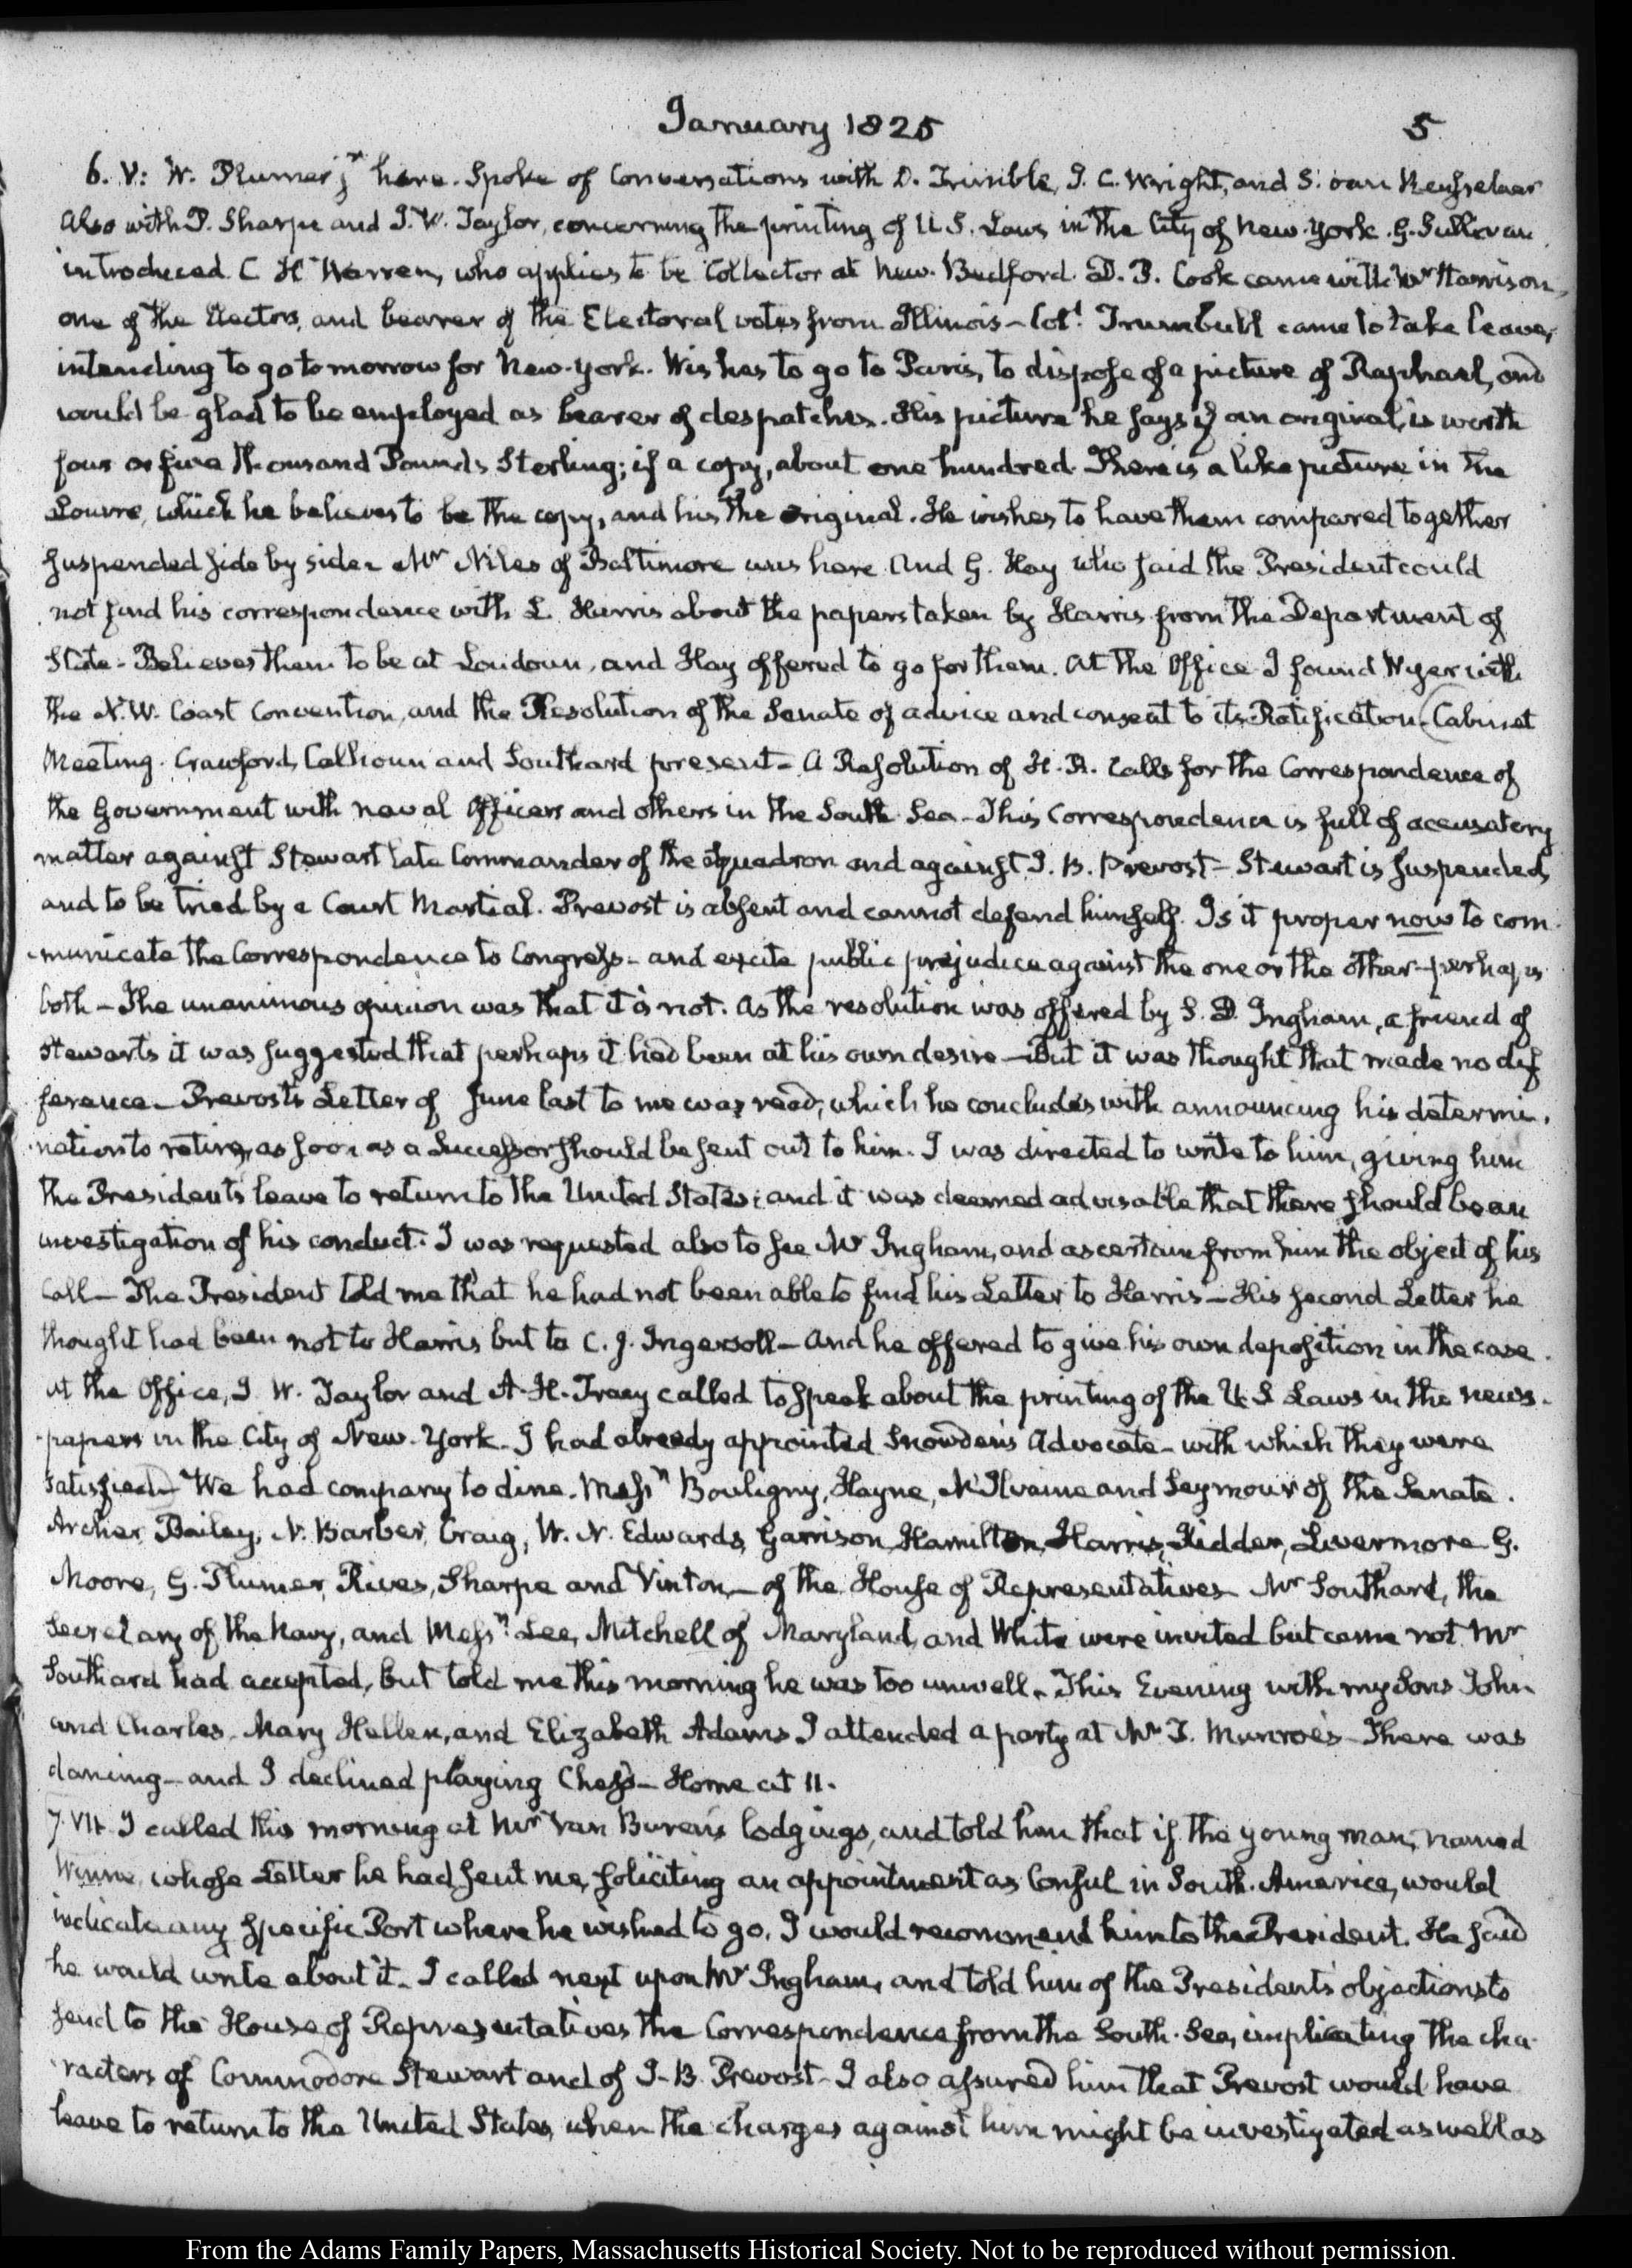 January 1825 5
6. V: W. Plumer jr here. Spoke of Conversations with D. Trimble, J. C. Wright, and S. van Renſselaer
also with P. Sharpe and J. W. Taylor, concerning the printing of U.S. Laws in the City of New-York. G. Sullivan
introduced C H Warren, who applies to be Collector at New-Bedford. D. P. Cook came with Mr Harrison,
one of the Electors, and bearer of the Electoral votes from Illinois – Coll. Trumbull came to take leave,
intending to go to morrow for New-York. Wishes to go to Paris, to dispoſe of a picture of Raphael, and
would be glad to be employed as bearer of despatches. His picture he ſays if an original, is worth
four or five thousand Pounds Sterling; if a copy, about one hundred. There is a like picture in the
Louvre, which he believes to be the copy, and his the original. He wishes to have them compared together
ſuspended ſide by side. Mr Niles of Baltimore was here. And G. Hay who ſaid the President could
not find his correspondence with L. Harris about the papers taken by Harris from the Department of
State – Believes them to be at Loudoun, and Hay offered to go for them. At the Office I found Wyer with
the N. W. Coast Convention, and the Resolution of the Senate of advice and consent to its Ratification. (Cabinet
Meeting. Crawford, Calhoun and Southard present – A Reſolution of H. R. calls for the Correspondence of
the Government with naval Officers and others in the South Sea – This Correspondence is full of accusatory
matter againſt Stewart late Commander of the Squadron and againſt J. B. Prevost – Stewart is ſuspended,
and to be tried by a Court Martial. Prevost is abſent and cannot defend himſelf. Is it proper now to com-
-municate the Correspondence to Congreſs – and excite public prejudice against the one or the other – perhaps
both – The unanimous opinion was that it is not. As the resolution was offered by S. D. Ingham, a friend of
Stewart's it was ſuggested that perhaps it had been at his own desire – But it was thought that made no dif
ference – Prevost's Letter of June last to me was read, which he concludes with announcing his determi-
nation to retire, as ſoon as a Succeſsor ſhould be ſent out to him. I was directed to write to him, giving him
the President's leave to return to the United States; and it was deemed advisable that there ſhould be an
investigation of his conduct. I was requested also to ſee Mr Ingham, and ascertain from him the object of his
Call – The President told me that he had not been able to find his Letter to Harris – His ſecond Letter he
thought had been not to Harris but to C. J. Ingersoll – And he offered to give his own depoſition in the case.
At the Office, J. W. Taylor and A. H. Tracy called to ſpeak about the printing of the U. S Laws in the news-
-papers in the City of New-York – I had already appointed Snowden's Advocate – with which they were
satisfied) We had company to dine. Meſsrs Bouligny, Hayne, McIlvaine and Seymour of the Senate.
Archer, Bailey, N. Barber, Craig, W. N. Edwards, Garrison, Hamilton, Harris, Kidder, Livermore G.
Moore, G. Plumer, Rives, Sharpe and Vinton – of the Houſe of Representatives – Mr Southard, the
Secretary of the Navy, and Meſsrs Lee, Mitchell of Maryland, and White were invited but came not. Mr
Southard had accepted, but told me this morning he was too unwell. This Evening with my Sons John
and Charles, Mary Hellen, and Elizabeth Adams I attended a party at Mr T. Munroe's – There was
dancing – and I declined playing Cheſs – Home at 11.
7. VII. I called this morning at Mr Van Buren's lodgings, and told him that if the young man, named
Winne, whoſe Letter he had ſent me, ſoliciting an appointment as Conſul in South-America, would
indicate any ſpecific Port where he wished to go, I would recommend him to the President. He ſaid
he would write about it – I called next upon Mr Ingham, and told him of the President's objections to
ſend to the House of Representatives the Correspondence from the South-Sea, implicating the cha-
racters of Commodore Stewart and of J. B. Prevost – I also aſsured him that Prevost would have
leave to return to the United States, when the charges against him might be investigated as well as
From the Adams Family Papers, Massachusetts Historical Society. Not to be reproduced without permission.